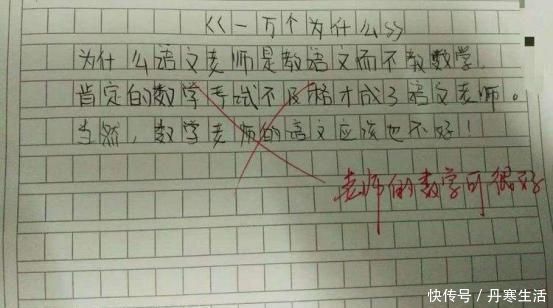 《一万个为什么》
为什么语文老师是教语文而不教数学，
肯定的数学考试不及格才成了语文老师。
当然，数学老师的语文应该也不好！
老师的数学可很好
快传号／丹寒生活